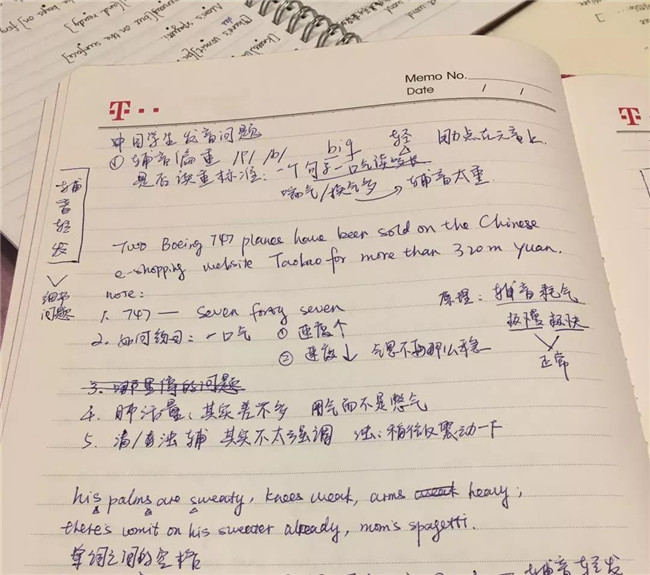 Memo No.
Date / /
T
T
中国学生发音问题
① 辅音偏重 /P/ /b/ big 轻 因力点在元音上
是否读重标准: 一个句子一口气读
喘气/换气多 → 辅音太重
辅音轻发
细节问题
Two Boeing 747 planes have been sold on the Chinese
e-shopping website Taobao for more than 320m Yuan.
note:
1. 747 — Seven forty seven
2. 如何练习: 一口气 ① 速度个
② 速度↓ 气息不再那么稳
原理: 辅音耗气
极慢 极快
正常
3. 哪里停的问题
4. 肺活量, 其实差不多 用气而不是憋气
5. 清/浊辅 其实不太强调 浊: 稍微震动一下
his palms are sweaty, knees weak, arms heavy;
there's vomit on his sweater already, mom's spagetti.
单词之间的空格
辅音轻发